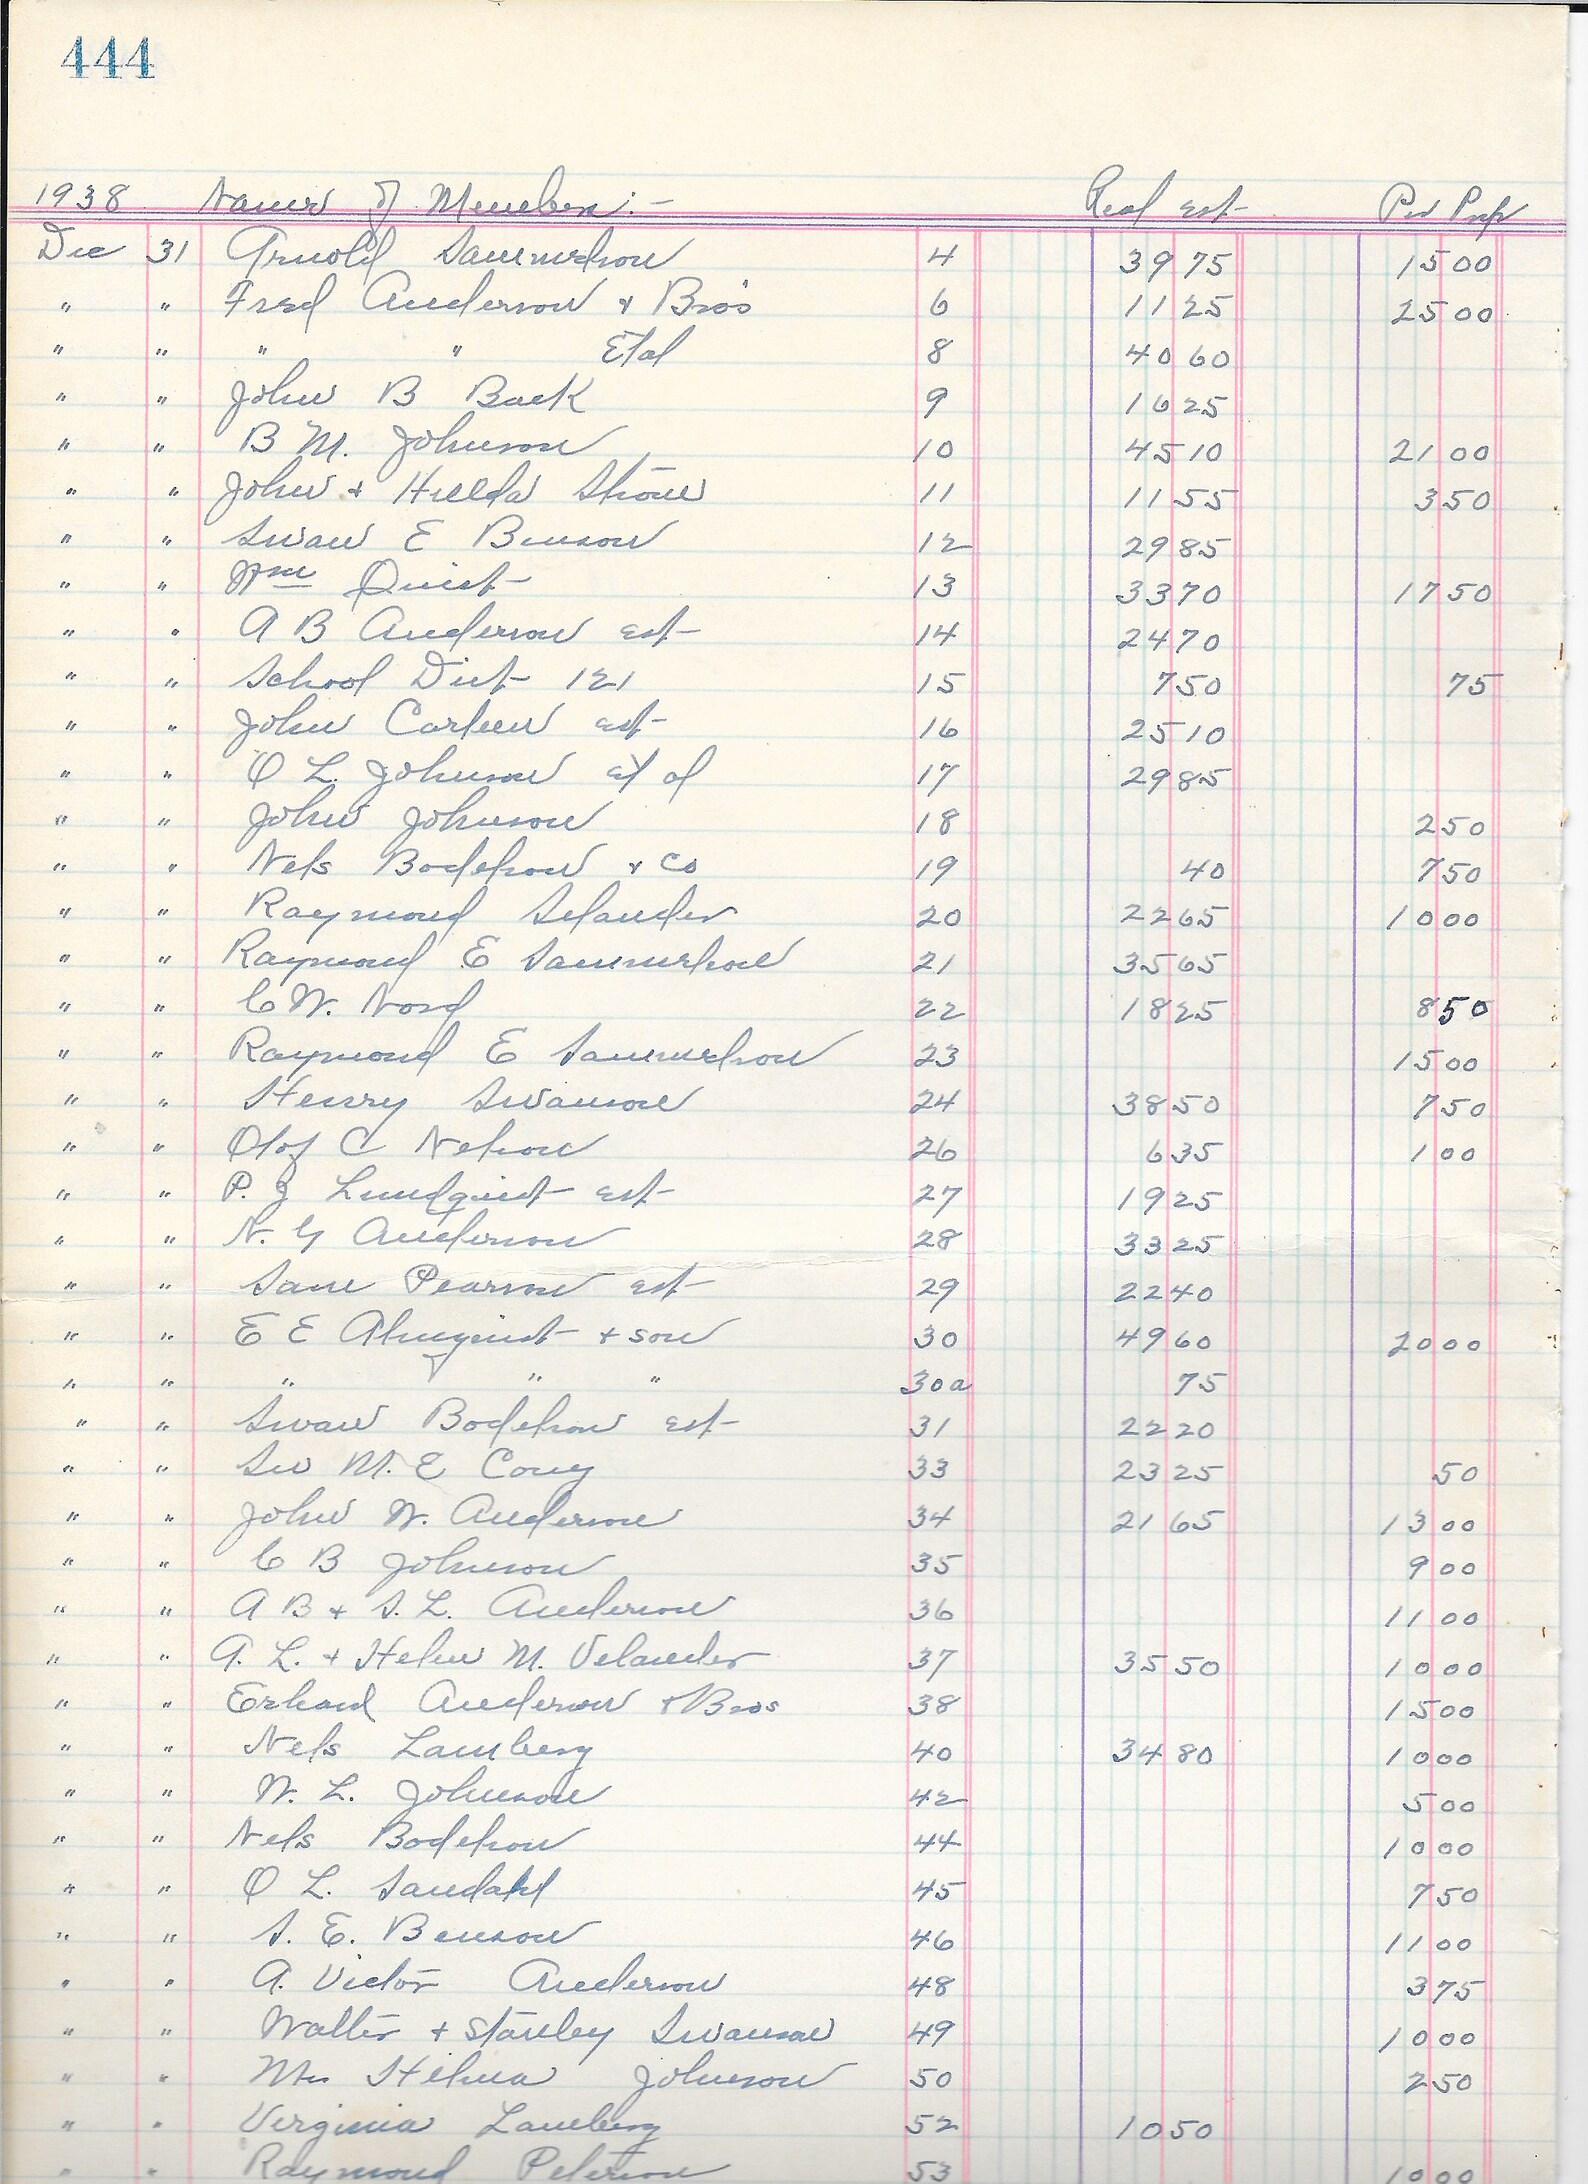 444
1938 Names of Members:- Real est Per Prop
Dec 31 Arnold Sammelson 4 3975 1500
" " Fred Anderson + Bro's 6 1125 2500
" " " " Etal 8 4060
" " John B Back 9 1625
" " B M. Johnson 10 4510 2100
" " John + Hulda Stone 11 1155 350
" " Swan E Benson 12 2985
" " Wm Quist 13 3370 1750
" " A B Anderson est 14 2470
" " School Dist 121 15 750 75
" " John Carleen est 16 2510
" " O L. Johnson et al 17 2985
" " John Johnson 18 250
" " Nels Bodelson + Co 19 40 750
" " Raymond Selander 20 2265 1000
" " Raymond E Sammelson 21 3565
" " C W. Nord 22 1825 850
" " Raymond E Sammelson 23 1500
" " Henry Swanson 24 3850 750
" " Olof C Nelson 26 635 100
" " P. J Lundquist est 27 1925
" " N. G Anderson 28 3325
" " Pearson est 29 2240
" " E E Almquist + son 30 4960 2000
" " " " " 30a 75
" " Swan Bodelson est 31 2220
" " Sw M. E Cong 33 2325 50
" " John W. Anderson 34 2165 1300
" " C B Johnson 35 900
" " A B + S. L. Anderson 36 1100
" " A. L. + Helen M. Velander 37 3550 1000
" " Erhard Anderson + Bros 38 1500
" " Nels Lamberg 40 3480 1000
" " W. L. Johnson 42 500
" " Nels Bodelson 44 1000
" " O L. Sandahl 45 750
" " S. E. Benson 46 1100
" " A. Victor Anderson 48 375
" " Walter + Stanley Swanson 49 1000
" " Mrs Hilma Johnson 50 250
" " Virginia Lamberg 52 1050
" " Raymond Peterson 53 1000